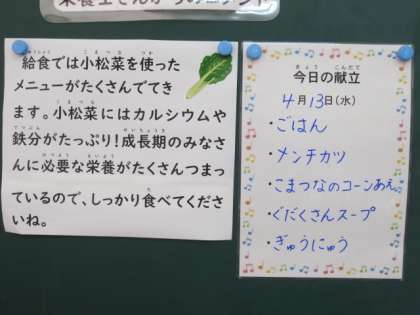 給食では小松菜を使った
メニューがたくさんでてき
ます。小松菜にはカルシウムや
鉄分がたっぷり!成長期のみなさ
んに必要な栄養がたくさんつまっ
ているので、しっかり食べてくださ
いね。
今日の献立
4月13日(水)
・ごはん
・メンチカツ
・こまつなのコーンあえ
・ぐだくさんスープ
・ぎゅうにゅう